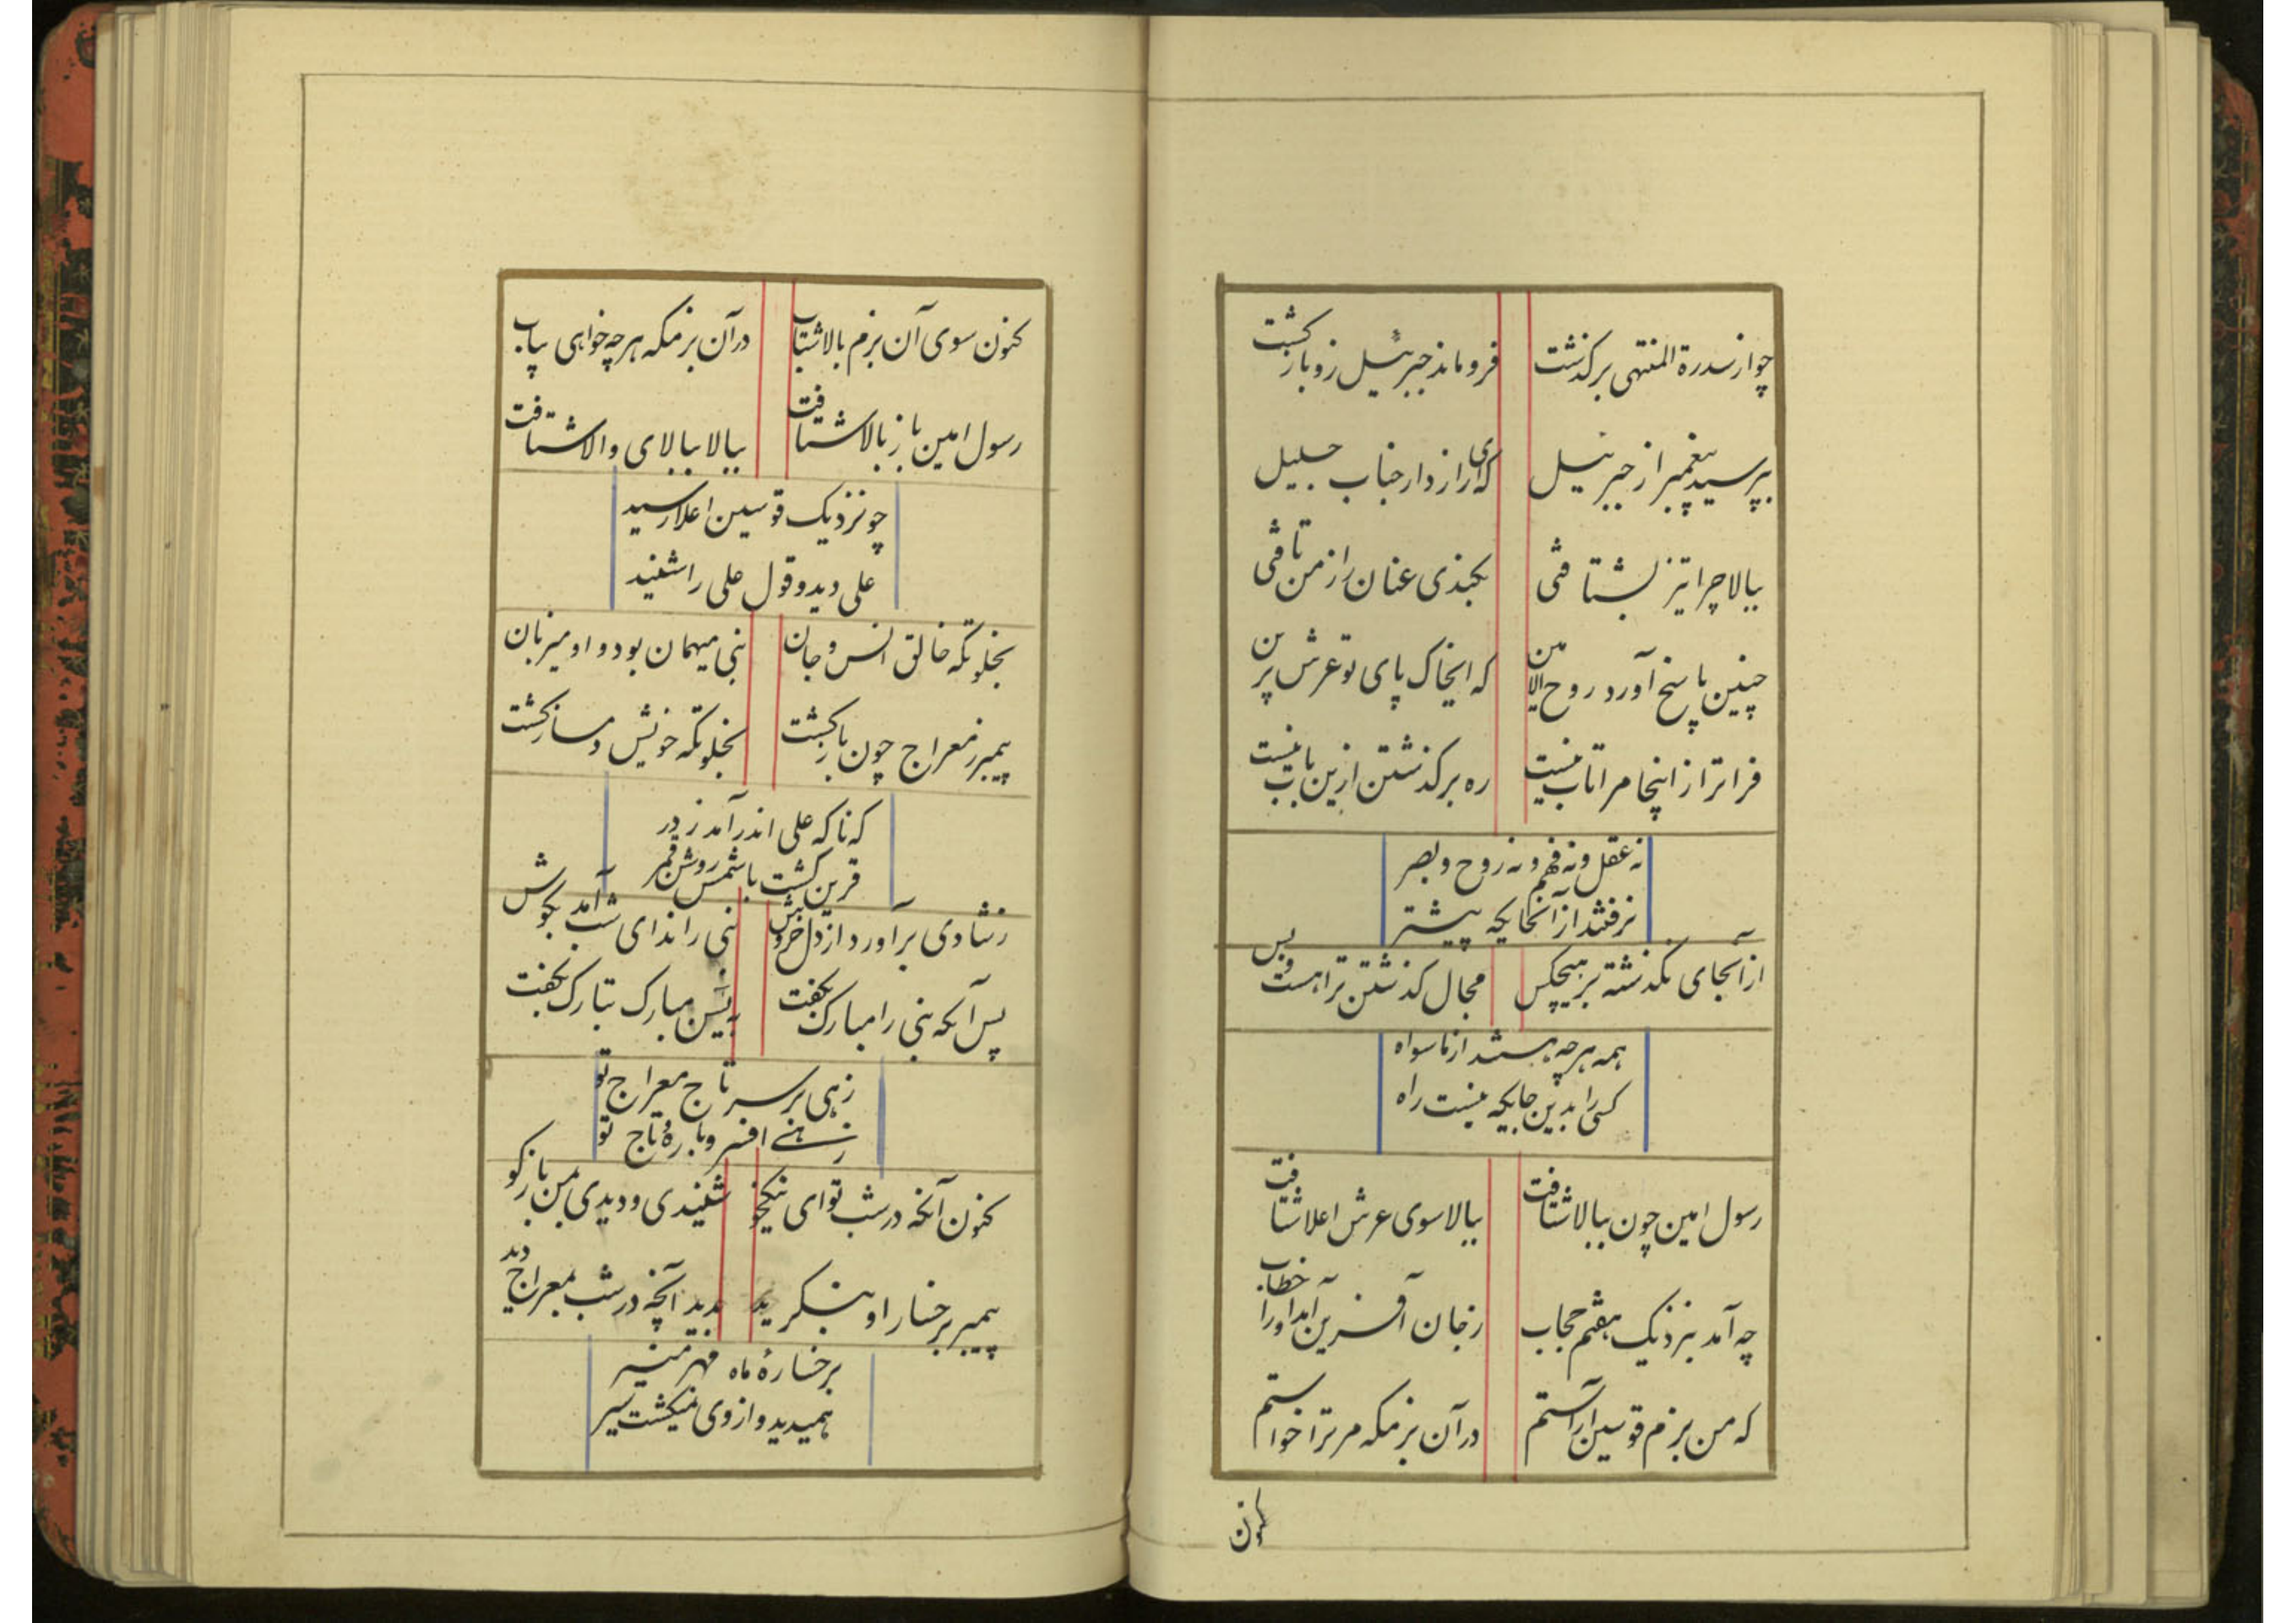 چو از سدرة المنتهی برکذشت فروماند جبرئیل زو بازکشت
بپرسید پیغمبر از جبرئیل که ای رازدار جناب جلیل
ببالا چرا تیز نشتافتی بکندی عنان را ز من تافتی
چنین پاسخ آورد روح الامین که ایخاک پای تو عرش برین
فراتر از اینجا مرا تاب نیست ره برکذشتن ازین باب نیست
نه عقل و نه فهم و نه روح و بصر
نرفتند از آنجایکه پیشتر
از آنجای نکذشته بر هیچکس مجال کذشتن ترا هست و بس
همه هر چه هستند از ماسواه
کسی را بدین جایکه نیست راه
رسول امین چون ببالا شتافت ببالا سوی عرش اعلا شتافت
چه آمد بنزدیک هفتم حجاب ز جان آفرین آمد او را خطاب
که من بزم قوسین آراستم در آن بزمکه مر ترا خواستم
کنون
کنون سوی آن بزم بالا شتاب در آن بزمکه هر چه خواهی بیاب
رسول امین باز بالا شتافت ببالا ببالای والا شتافت
چو نزدیک قوسین اعلا رسید
علی دید و قول علی را شنید
بخلوتکه خالق انس و جان نبی میهمان بود و او میزبان
پیمبر ز معراج چون بازکشت بخلوتکه خویش دمساز کشت
که ناکه علی اندر آمد ز در
قرین کشت با شمس روشن قمر
ز شادی برآورد از دل خروش نبی را ندای شب آمد بکوش
پس آنکه نبی را مبارک بکفت ببین مبارک تبارک بکفت
زهی بر سر تاج معراج تو
زهی افسر و یاره و تاج تو
کنون آنچه در شب تو ای نیکخو شنیدی و دیدی بمن بازکو
پیمبر برخسار او بنکرید بدید آنچه در شب بمعراج دید
برخسارهٔ ماه مهر منیر
همیدید و از وی نمیکشت سیر